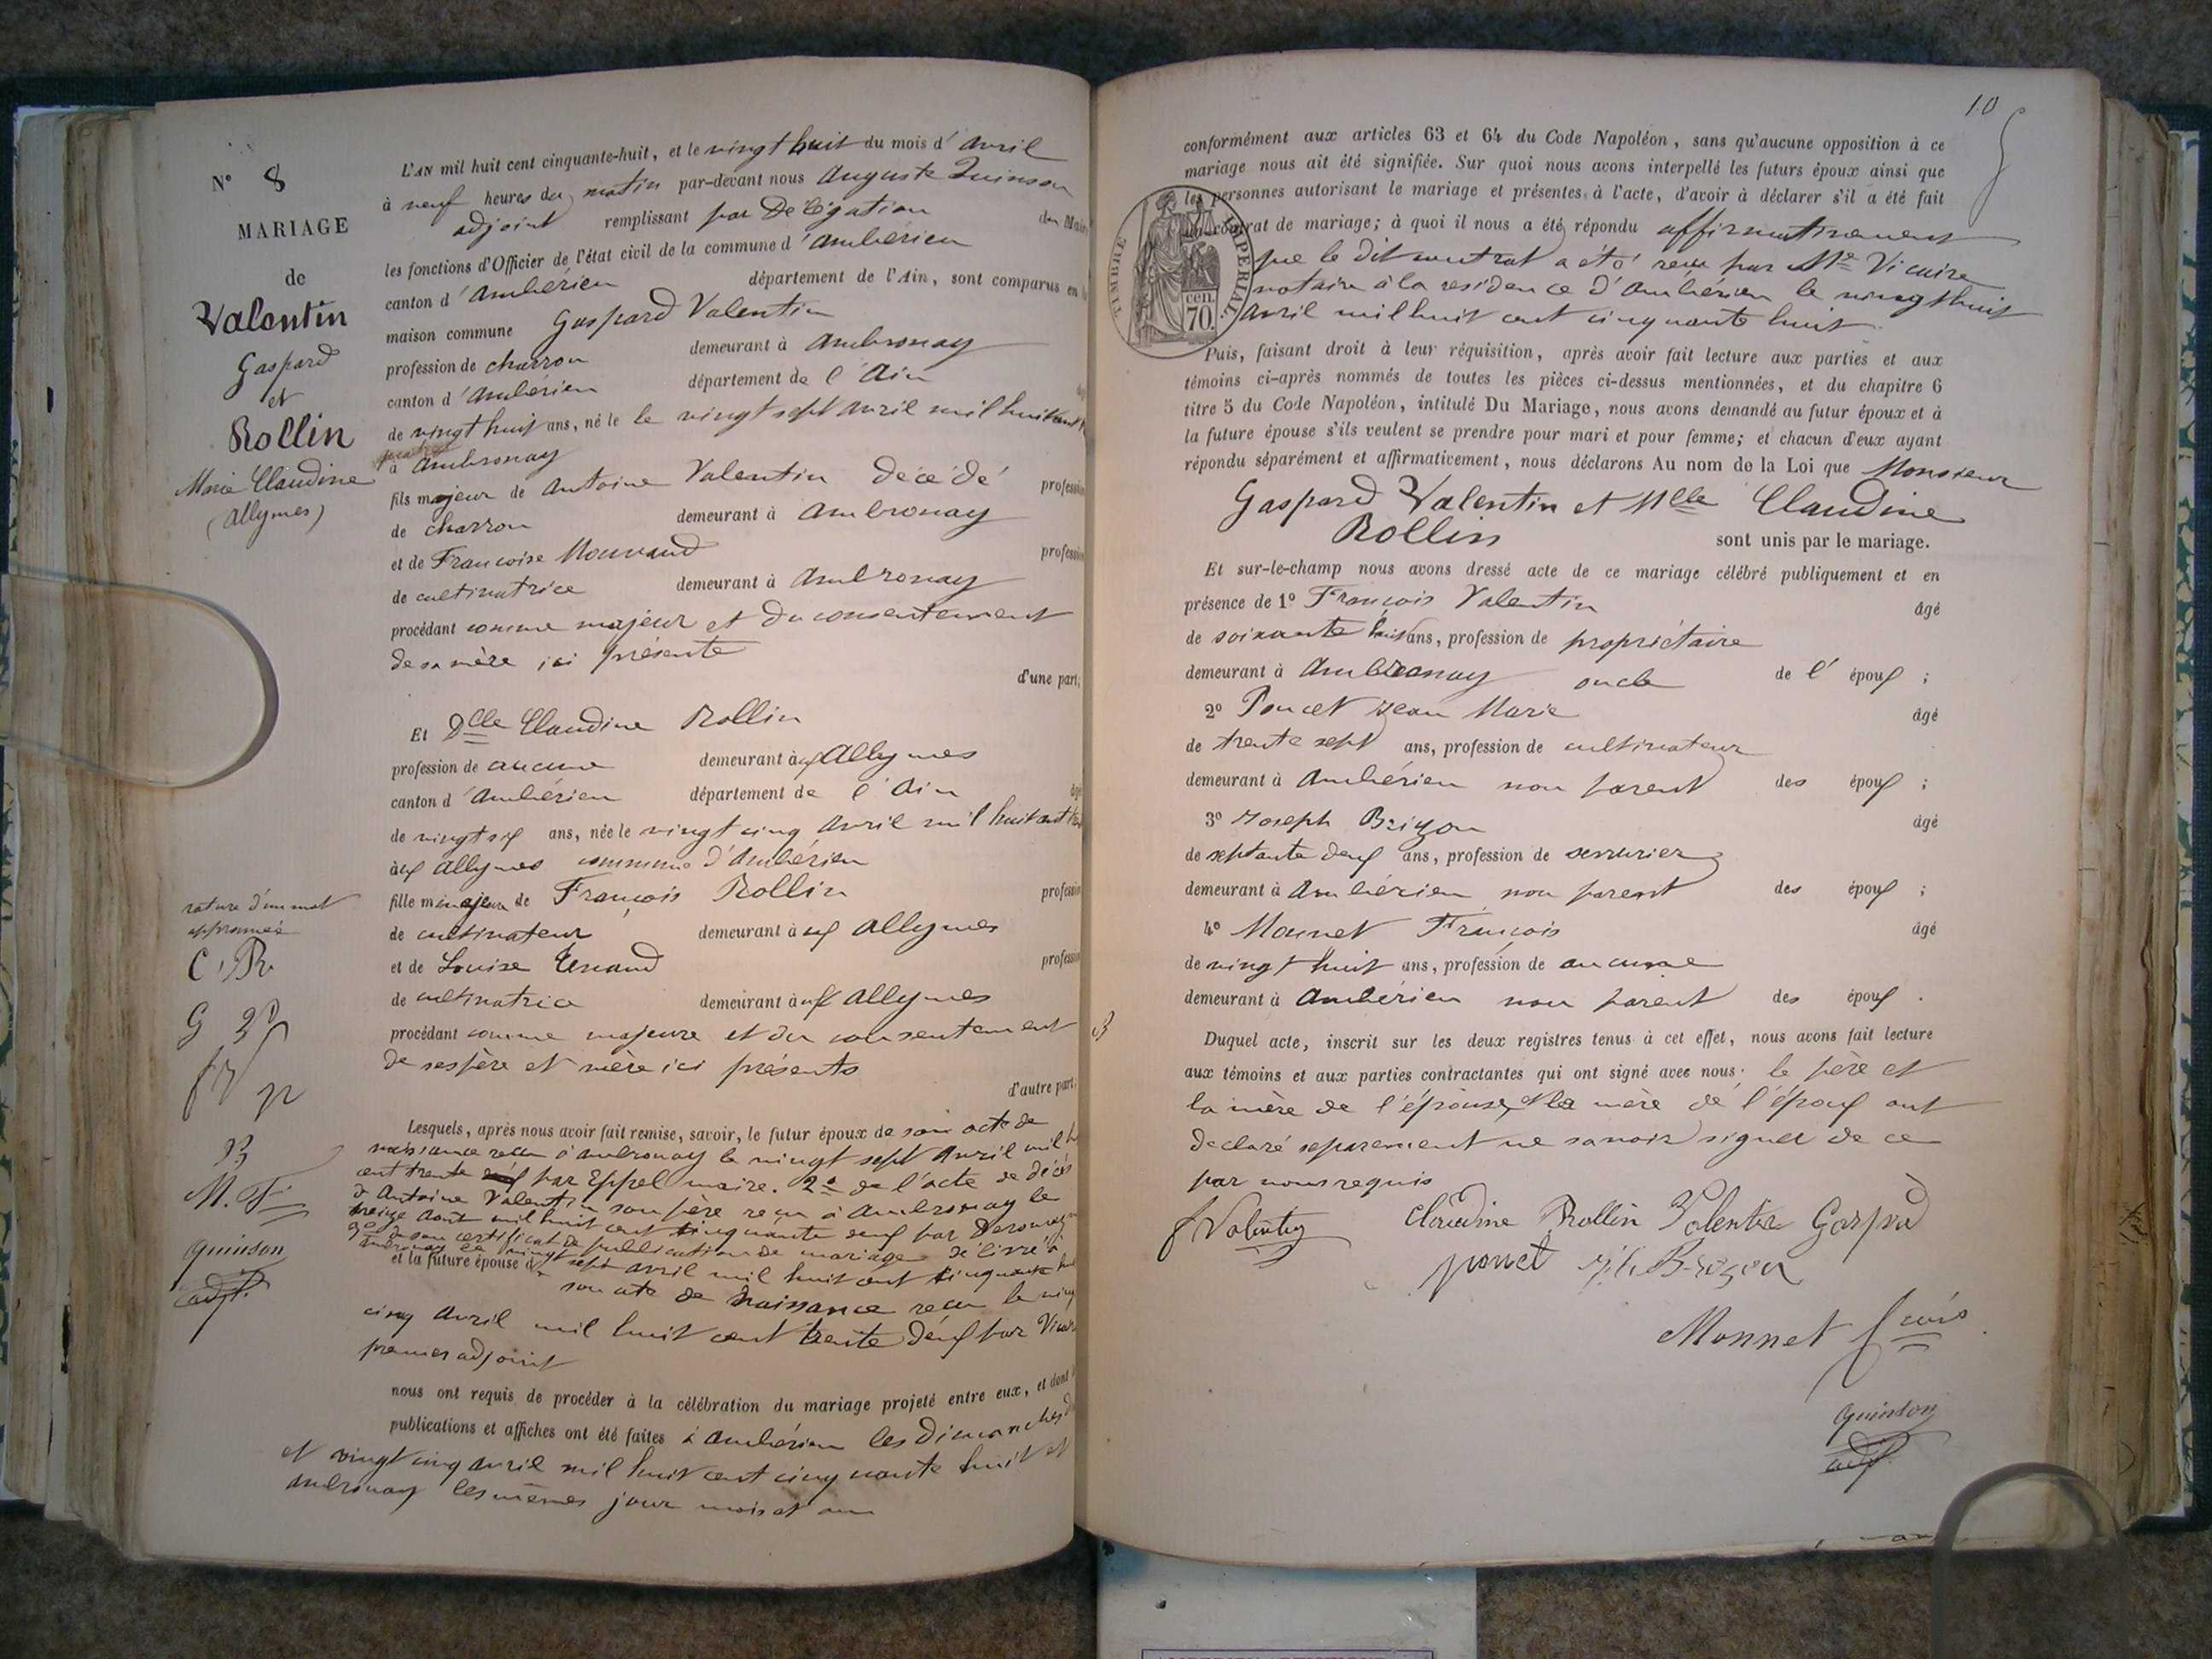 N° 8
MARIAGE
de
Valentin
Gaspard
et
Rollin
Marie Claudine
(allymes)
rature d'un mot
approuvée
C. R.
G V
B
M. F
quinson
adjt.
L'AN mil huit cent cinquante-huit, et le vingt huit du mois d'avril
à neuf heures du matin par-devant nous auguste Quinson
adjoint remplissant par Délégation du Maire
les fonctions d'Officier de l'état civil de la commune d'ambérieu
canton d'ambérieu département de l'Ain, sont comparus en la
maison commune Gaspard Valentin
profession de charron demeurant à ambronay
canton d'ambérieu département de l'Ain
de vingt huit ans, né le le vingt sept avril mil huit cent
à ambronay
fils majeur de antoine Valentin décédé profession
de charron demeurant à ambronay
et de Francoise profession
de cultivatrice demeurant à ambronay
procédant comme majeur et du consentement
de sa mère ici présente
d'une part;
Et Dlle Claudine Rollin
profession de aucune demeurant aux allymes
canton d'ambérieu département de l'ain
de vingt six ans, née le vingt cinq avril mil huit cent
aux allymes commune d'ambérieu
fille majeure de François Rollin profession
de cultivateur demeurant aux allymes
et de Louise profession
de cultivatrice demeurant aux allymes
procédant comme majeure et du consentement
de ses père et mère ici présents
d'autre part.
Lesquels, après nous avoir fait remise, savoir, le futur époux de son acte de
naissance reçu à ambronay le vingt sept avril mil
cent trente par Eppel maire. 2° de l'acte de décès
d'Antoine Valentin son père reçu à ambronay le
treize août mil huit cent cinquante deux par
3° de son certificat de publication de mariage délivré à
ambronay le vingt sept avril mil huit cent cinquante huit
et la future épouse de son acte de naissance reçu le vingt
cinq avril mil huit cent trente deux par
premier adjoint
nous ont requis de procéder à la célébration du mariage projeté entre eux, et dont
publications et affiches ont été faites à ambérieu les dimanches
et vingt cinq avril mil huit cent cinquante huit et
ambronay les mêmes jour mois et an
10
conformément aux articles 63 et 64 du Code Napoléon, sans qu'aucune opposition à ce
mariage nous ait été signifiée. Sur quoi nous avons interpellé les futurs époux ainsi que
les personnes autorisant le mariage et présentes à l'acte, d'avoir à déclarer s'il a été fait
un contrat de mariage; à quoi il nous a été répondu affirmativement
que le dit contrat a été reçu par Me Vicaire
notaire à la residence d'ambérieu le vingt huit
avril mil huit cent cinquante huit
TIMBRE IMPÉRIAL
70 cen.
Puis, faisant droit à leur réquisition, après avoir fait lecture aux parties et aux
témoins ci-après nommés de toutes les pièces ci-dessus mentionnées, et du chapitre 6
titre 5 du Code Napoléon, intitulé Du Mariage, nous avons demandé au futur époux et à
la future épouse s'ils veulent se prendre pour mari et pour femme; et chacun d'eux ayant
répondu séparément et affirmativement, nous déclarons Au nom de la Loi que Monsieur
Gaspard Valentin et Mlle Claudine
Rollin sont unis par le mariage.
Et sur-le-champ nous avons dressé acte de ce mariage célébré publiquement et en
présence de 1° François Valentin âgé
de soixante huit ans, profession de propriétaire
demeurant à Ambronay oncle de l'époux;
2° Poncet Jean Marie âgé
de trente sept ans, profession de cultivateur
demeurant à ambérieu non parent des époux;
3° Joseph Brizon âgé
de septante deux ans, profession de serrurier
demeurant à ambérieu non parent des époux;
4° Monnet François âgé
de vingt huit ans, profession de aucune
demeurant à ambérieu non parent des époux.
Duquel acte, inscrit sur les deux registres tenus à cet effet, nous avons fait lecture
aux témoins et aux parties contractantes qui ont signé avec nous. le père et
la mère de l'épouse, et la mère de l'époux ont
declaré separement ne savoir signer de ce
par nous requis
f Valentin Claudine Rollin Valentin Gaspard
ponset
Monnet fcois
quinson
adjt.